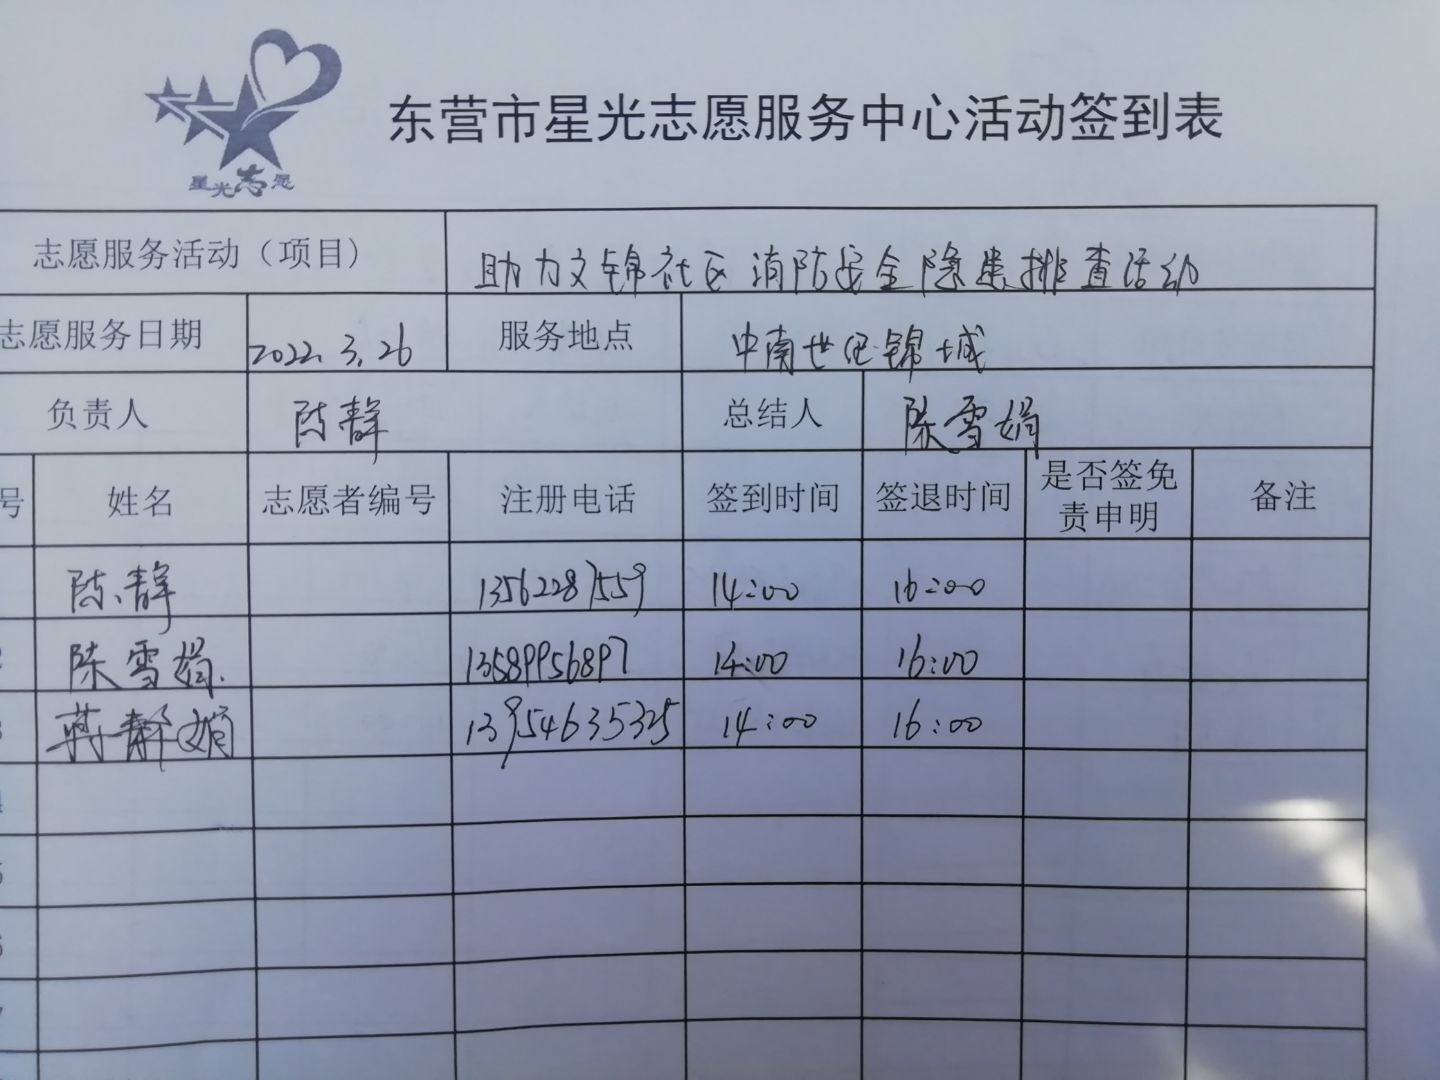 星光志愿
东营市星光志愿服务中心活动签到表
志愿服务活动（项目） 助力文锦社区消防安全隐患排查活动
志愿服务日期 2022.3.26 服务地点 中南世纪锦城
负责人 陈静 总结人 陈雪娟
号 姓名 志愿者编号 注册电话 签到时间 签退时间 是否签免责申明 备注
陈静 13562287559 14:00 16:00
2 陈雪娟 13589956897 14:00 16:00
3 蒋静娴 13954635325 14:00 16:00
4
5
6
7